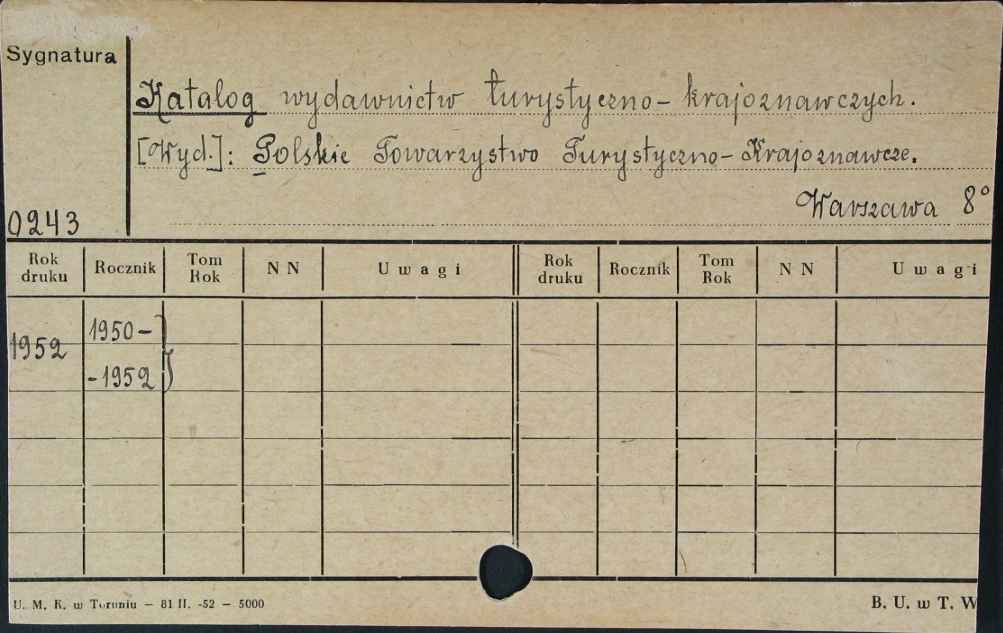 Sygnatura
Katalog wydawnictw turystyczno-krajoznawczych.
[Wyd.]: Polskie Towarzystwo Turystyczno-Krajoznawcze.
Warszawa 8°
0243
Rok druku Rocznik Tom Rok N N Uwagi Rok druku Rocznik Tom Rok N N Uwagi
1952 1950-
-1952
U. M. K. w Toruniu — 81 II. -52 — 5000 B. U. w T. W